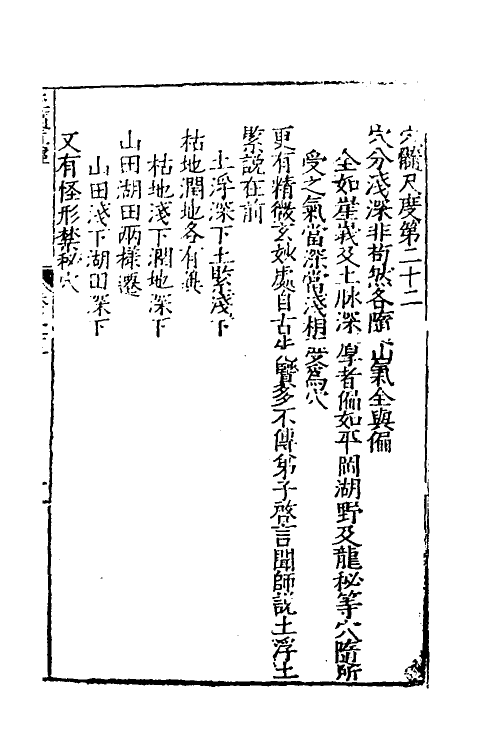 穴髓尺度第二十二
穴分淺深非苟然各隨山氣全與偏
全如崖義及土脉深厚者偏如平岡湖野及龍秘等穴隨所
受之氣當深當淺相受爲穴
更有精微玄妙處自古先賢多不傳弟子啓言聞師說土浮土
緊説在前
土浮深下土緊淺下
枯地潤地各有異
枯地淺下潤地深下
山田湖田兩樣遷
山田淺下湖田深下
又有怪形禁秘穴